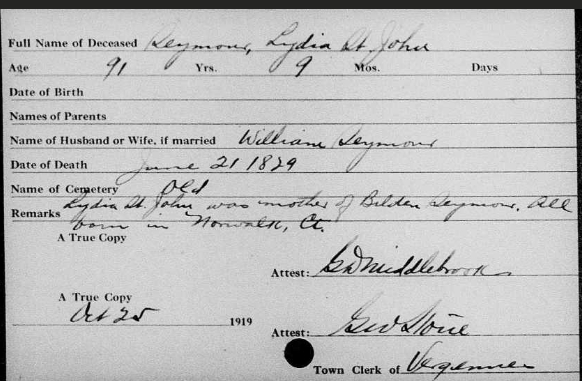 Full Name of Deceased Seymour, Lydia St. John
Age 91 Yrs. 9 Mos. Days
Date of Birth
Names of Parents
Name of Husband or Wife, if married William Seymour
Date of Death June 21 1829
Name of Cemetery Old
Remarks Lydia St. John was mother of Belden Seymour. All
born in Norwalk, Ct.
A True Copy
Attest: G D Middlebrook
A True Copy
Oct 25 1919
Attest: Geo Stone
Town Clerk of Vergennes